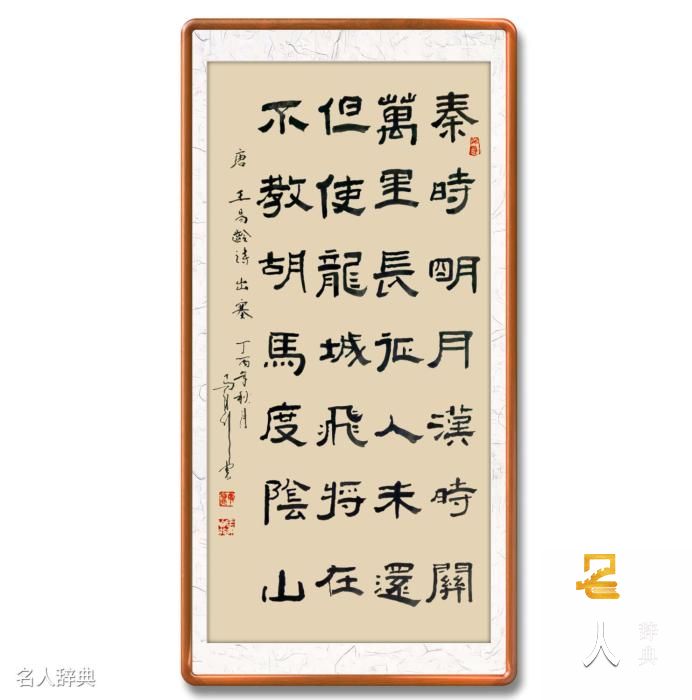 秦時明月漢時關
萬里長征人未還
但使龍城飛将在
不教胡馬度陰山
唐 王昌齡詩 出塞 丁丙年秋月
名人辞典
人
辞典